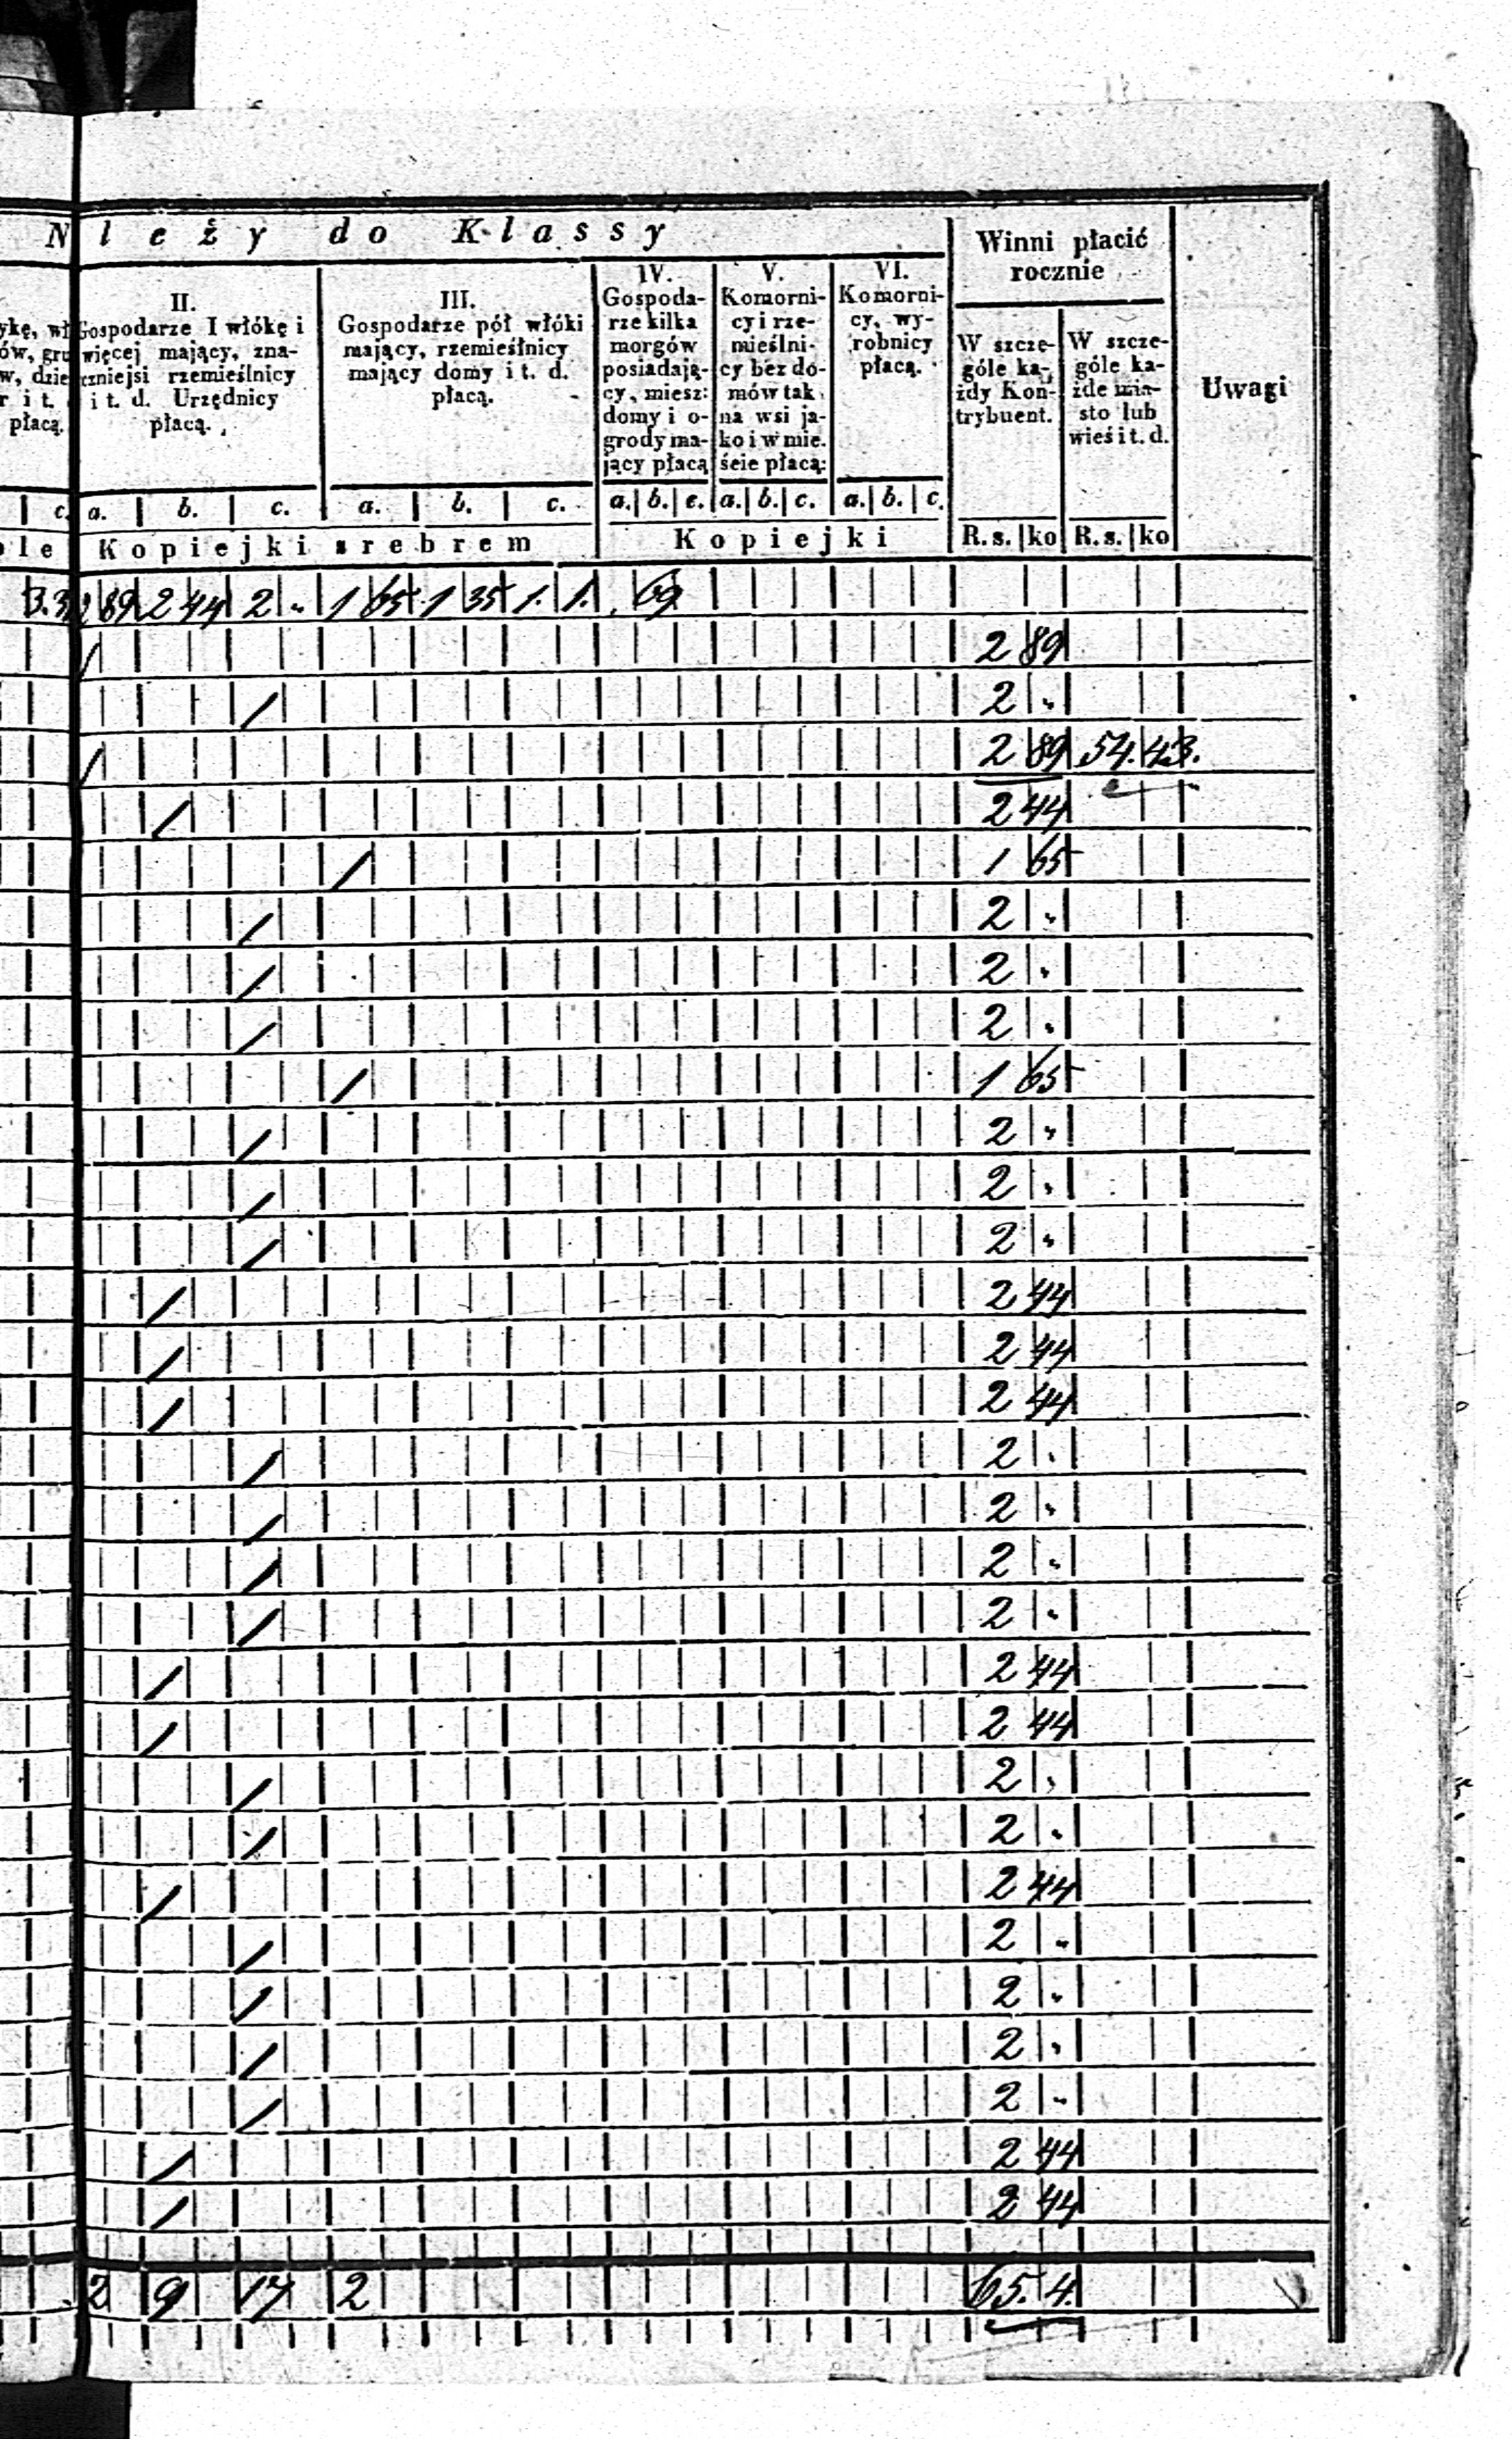 N leży do Klassy
Winni płacić
rocznie
Uwagi
II.
Gospodarze I włókę i
więcej mający, zna-
czniejsi rzemieślnicy
i t. d. Urzędnicy
płacą.
III.
Gospodarze pół włóki
mający, rzemieślnicy
mający domy i t. d.
płacą.
IV.
Gospoda-
rze kilka
morgów
posiadają-
cy, miesz:
domy i o-
grody ma-
jący płacą
V.
Komorni-
cy i rze-
mieślni-
cy bez do-
mów tak
na wsi ja-
ko i w mie.
ście płacą:
VI.
Komorni-
cy, wy-
robnicy
płacą.
W szcze-
góle ka-
żdy Kon-
trybuent.
W szcze-
góle ka-
żde mia-
sto lub
wieś i t. d.
płacą.
c. a. b. c. a. b. c. a. b. c. a. b. c. a. b. c.
Kopiejki srebrem Kopiejki R. s. ko R. s. ko
89 2 44 2 . 1 65 1 35 1. 1. 69
/ 2 89
/ 2 .
/ 2 89 54. 43.
/ 2 44
/ 1 65
/ 2 .
/ 2 .
/ 2 .
/ 1 65
/ 2 .
/ 2 .
/ 2 .
/ 2 44
/ 2 44
/ 2 44
/ 2 .
/ 2 .
/ 2 .
/ 2 .
/ 2 44
/ 2 44
/ 2 .
/ 2 .
/ 2 44
/ 2 .
/ 2 .
/ 2 .
/ 2 .
/ 2 44
/ 2 44
2 9 17 2 65. 4.